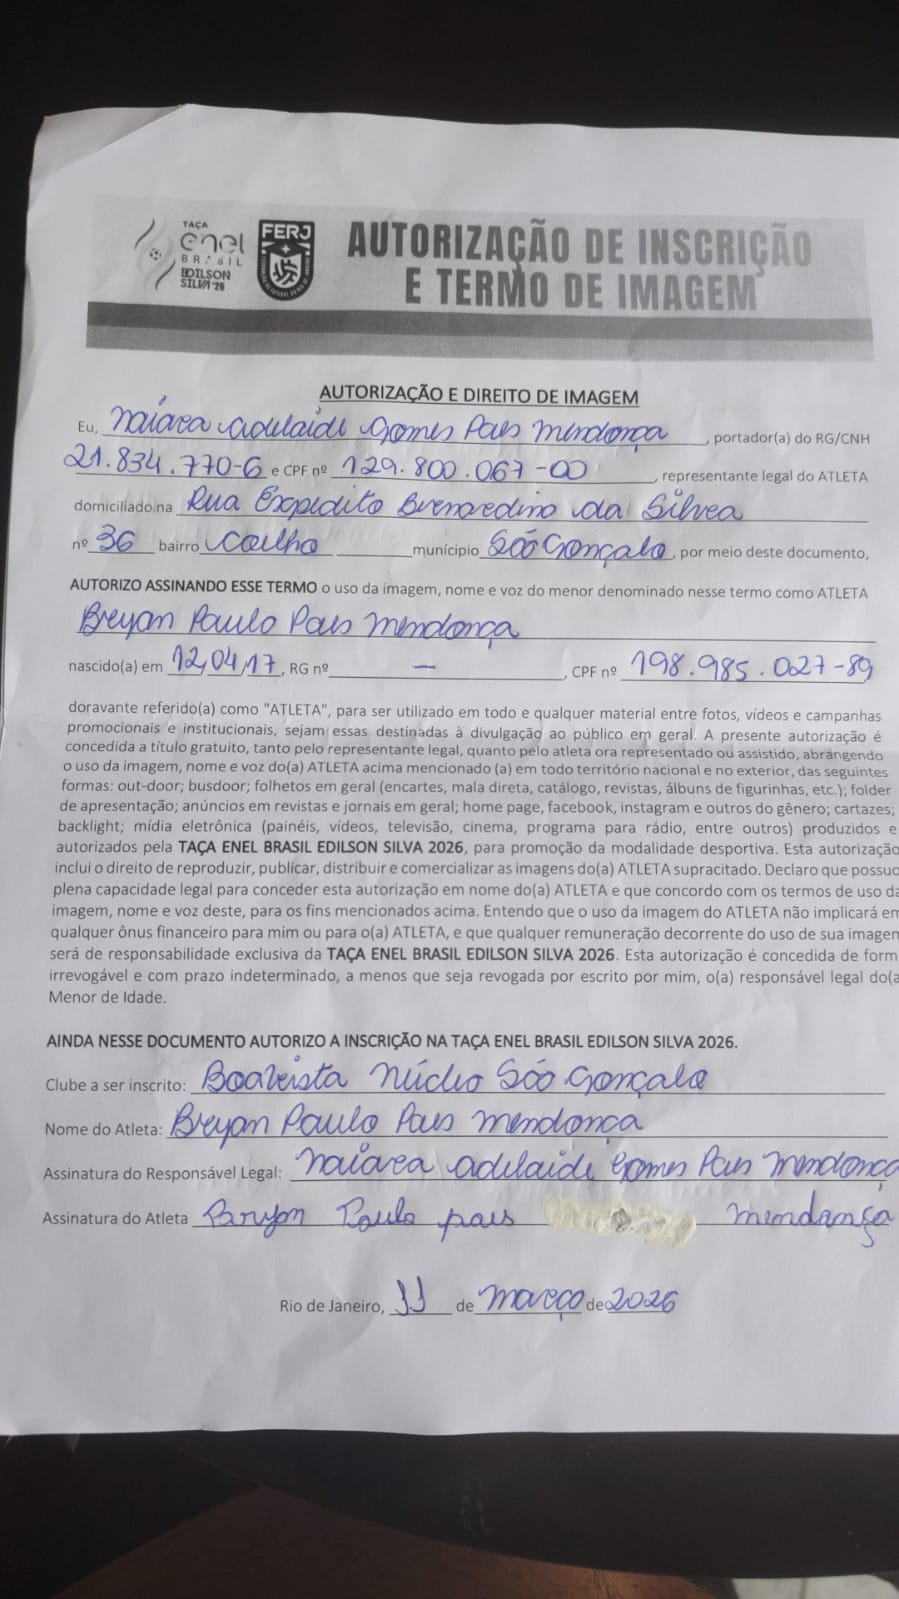 TAÇA
enel
BRASIL
EDILSON
SILVA '26
FERJ
AUTORIZAÇÃO DE INSCRIÇÃO
E TERMO DE IMAGEM
AUTORIZAÇÃO E DIREITO DE IMAGEM
Eu, Naiara Adelaide Gomes Pais Mendonça, portador(a) do RG/CNH
21.834.770-6 e CPF nº 129.800.067-00, representante legal do ATLETA
domiciliado na Rua Expedito Bernardino da Silva
nº 36 bairro Coelho município São Gonçalo, por meio deste documento,
AUTORIZO ASSINANDO ESSE TERMO o uso da imagem, nome e voz do menor denominado nesse termo como ATLETA
Breyan Paulo Pais Mendonça
nascido(a) em 12/04/17, RG nº -, CPF nº 198.985.027-89
doravante referido(a) como "ATLETA", para ser utilizado em todo e qualquer material entre fotos, vídeos e campanhas
promocionais e institucionais, sejam essas destinadas à divulgação ao público em geral. A presente autorização é
concedida a título gratuito, tanto pelo representante legal, quanto pelo atleta ora representado ou assistido, abrangendo
o uso da imagem, nome e voz do(a) ATLETA acima mencionado (a) em todo território nacional e no exterior, das seguintes
formas: out-door; busdoor; folhetos em geral (encartes, mala direta, catálogo, revistas, álbuns de figurinhas, etc.); folder
de apresentação; anúncios em revistas e jornais em geral; home page, facebook, instagram e outros do gênero; cartazes;
backlight; mídia eletrônica (painéis, vídeos, televisão, cinema, programa para rádio, entre outros) produzidos e
autorizados pela TAÇA ENEL BRASIL EDILSON SILVA 2026, para promoção da modalidade desportiva. Esta autorização
inclui o direito de reproduzir, publicar, distribuir e comercializar as imagens do(a) ATLETA supracitado. Declaro que possuo
plena capacidade legal para conceder esta autorização em nome do(a) ATLETA e que concordo com os termos de uso da
imagem, nome e voz deste, para os fins mencionados acima. Entendo que o uso da imagem do ATLETA não implicará em
qualquer ônus financeiro para mim ou para o(a) ATLETA, e que qualquer remuneração decorrente do uso de sua imagem
será de responsabilidade exclusiva da TAÇA ENEL BRASIL EDILSON SILVA 2026. Esta autorização é concedida de form
irrevogável e com prazo indeterminado, a menos que seja revogada por escrito por mim, o(a) responsável legal do(a
Menor de Idade.
AINDA NESSE DOCUMENTO AUTORIZO A INSCRIÇÃO NA TAÇA ENEL BRASIL EDILSON SILVA 2026.
Clube a ser inscrito: Boavista Núcleo São Gonçalo
Nome do Atleta: Breyan Paulo Pais Mendonça
Assinatura do Responsável Legal: Naiara Adelaide Gomes Pais Mendonça
Assinatura do Atleta Paulo pais mendança
Rio de Janeiro, 11 de março de 2026